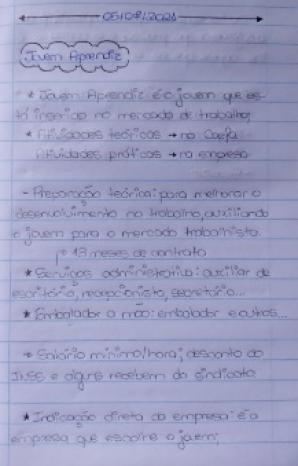 05/08/2021
Jovem Aprendiz
* Jovem Aprendiz é o jovem que es-
tá inserido no mercado de trabalho;
* Atividades teóricas → no Caefa
Atividades práticas → na empresa
- Preparação teórica: para melhorar o
desenvolvimento no trabalho, auxiliando
o jovem para o mercado trabalhista.
13 meses de contrato
* Serviços administrativo: auxiliar de
escritório, recepcionista, secretário...
* Embalador a mão: embalador e outros...
→ Salário mínimo/hora; desconto do
INSS e alguns recebem do sindicato
* Indicação direta da empresa: é a
empresa que escolhe o jovem;